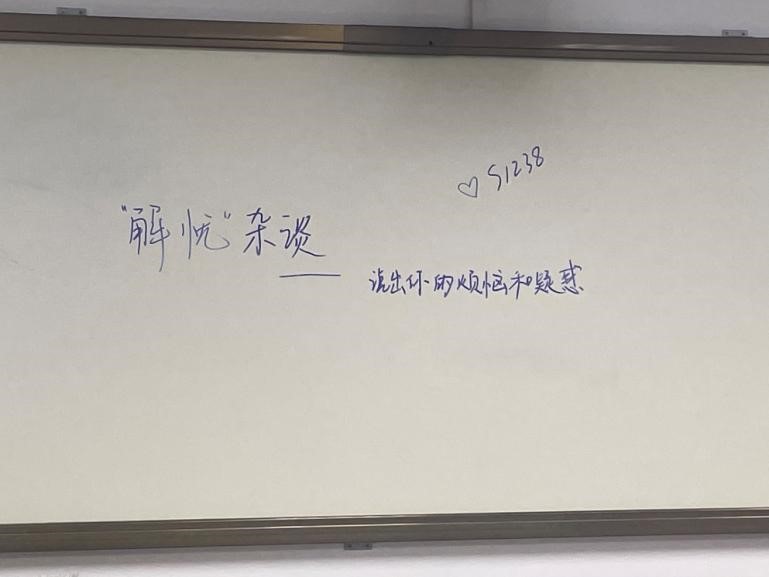 ♡ S1238
"解忧"杂谈
——说出你的烦恼和疑惑